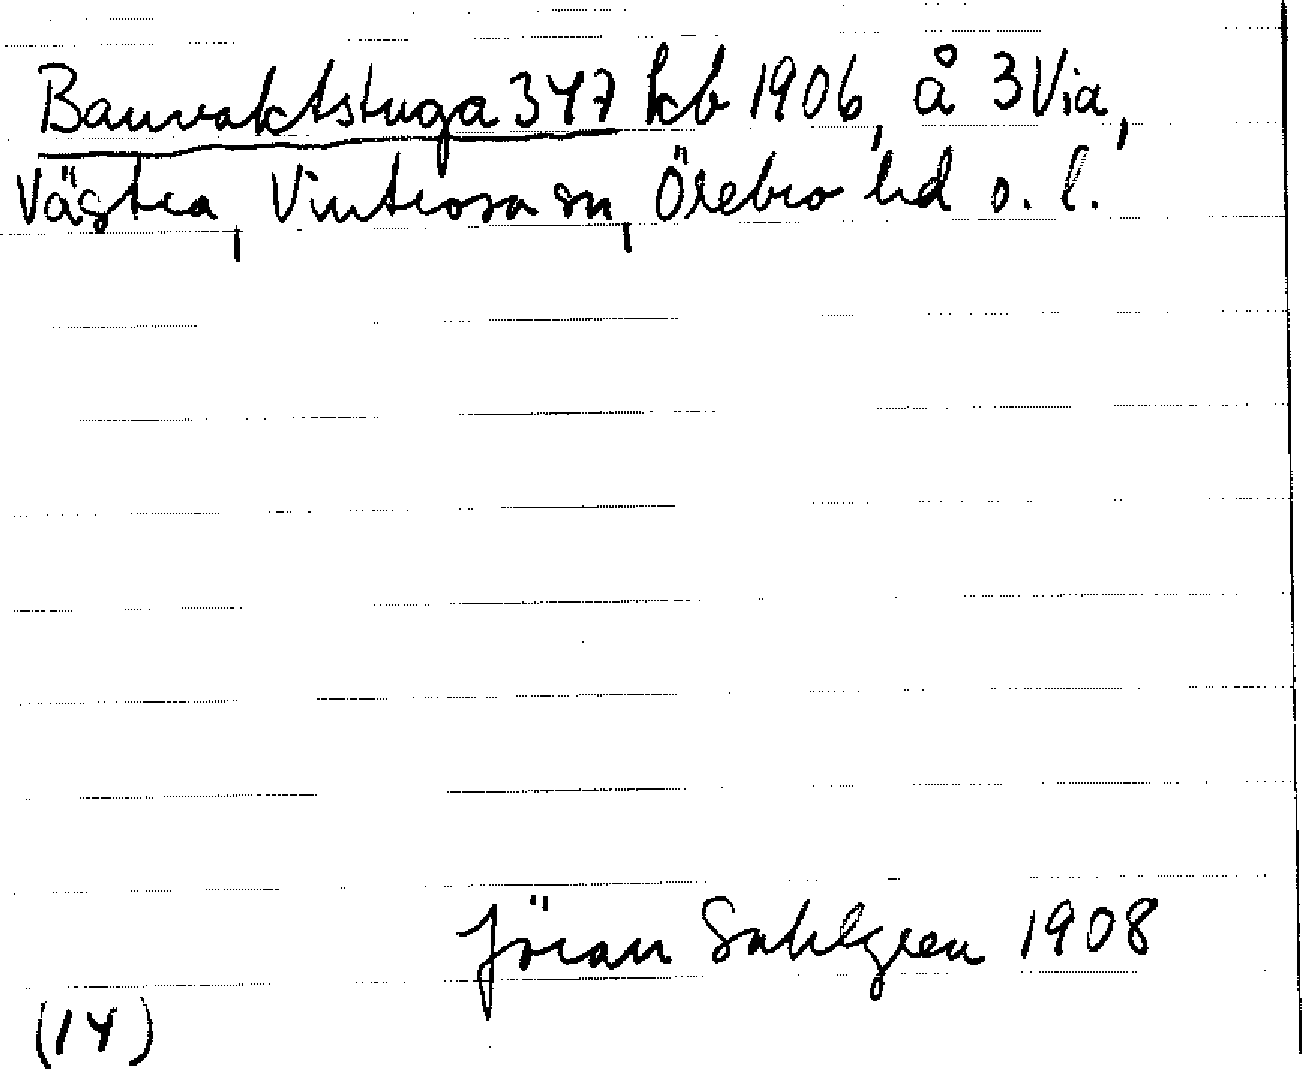 Banvaktstuga 347 kb 1906, å 3 Via,
Västra, Vintrosa sn, Örebro hd o. l.
Jöran Sahlgren 1908
(14)